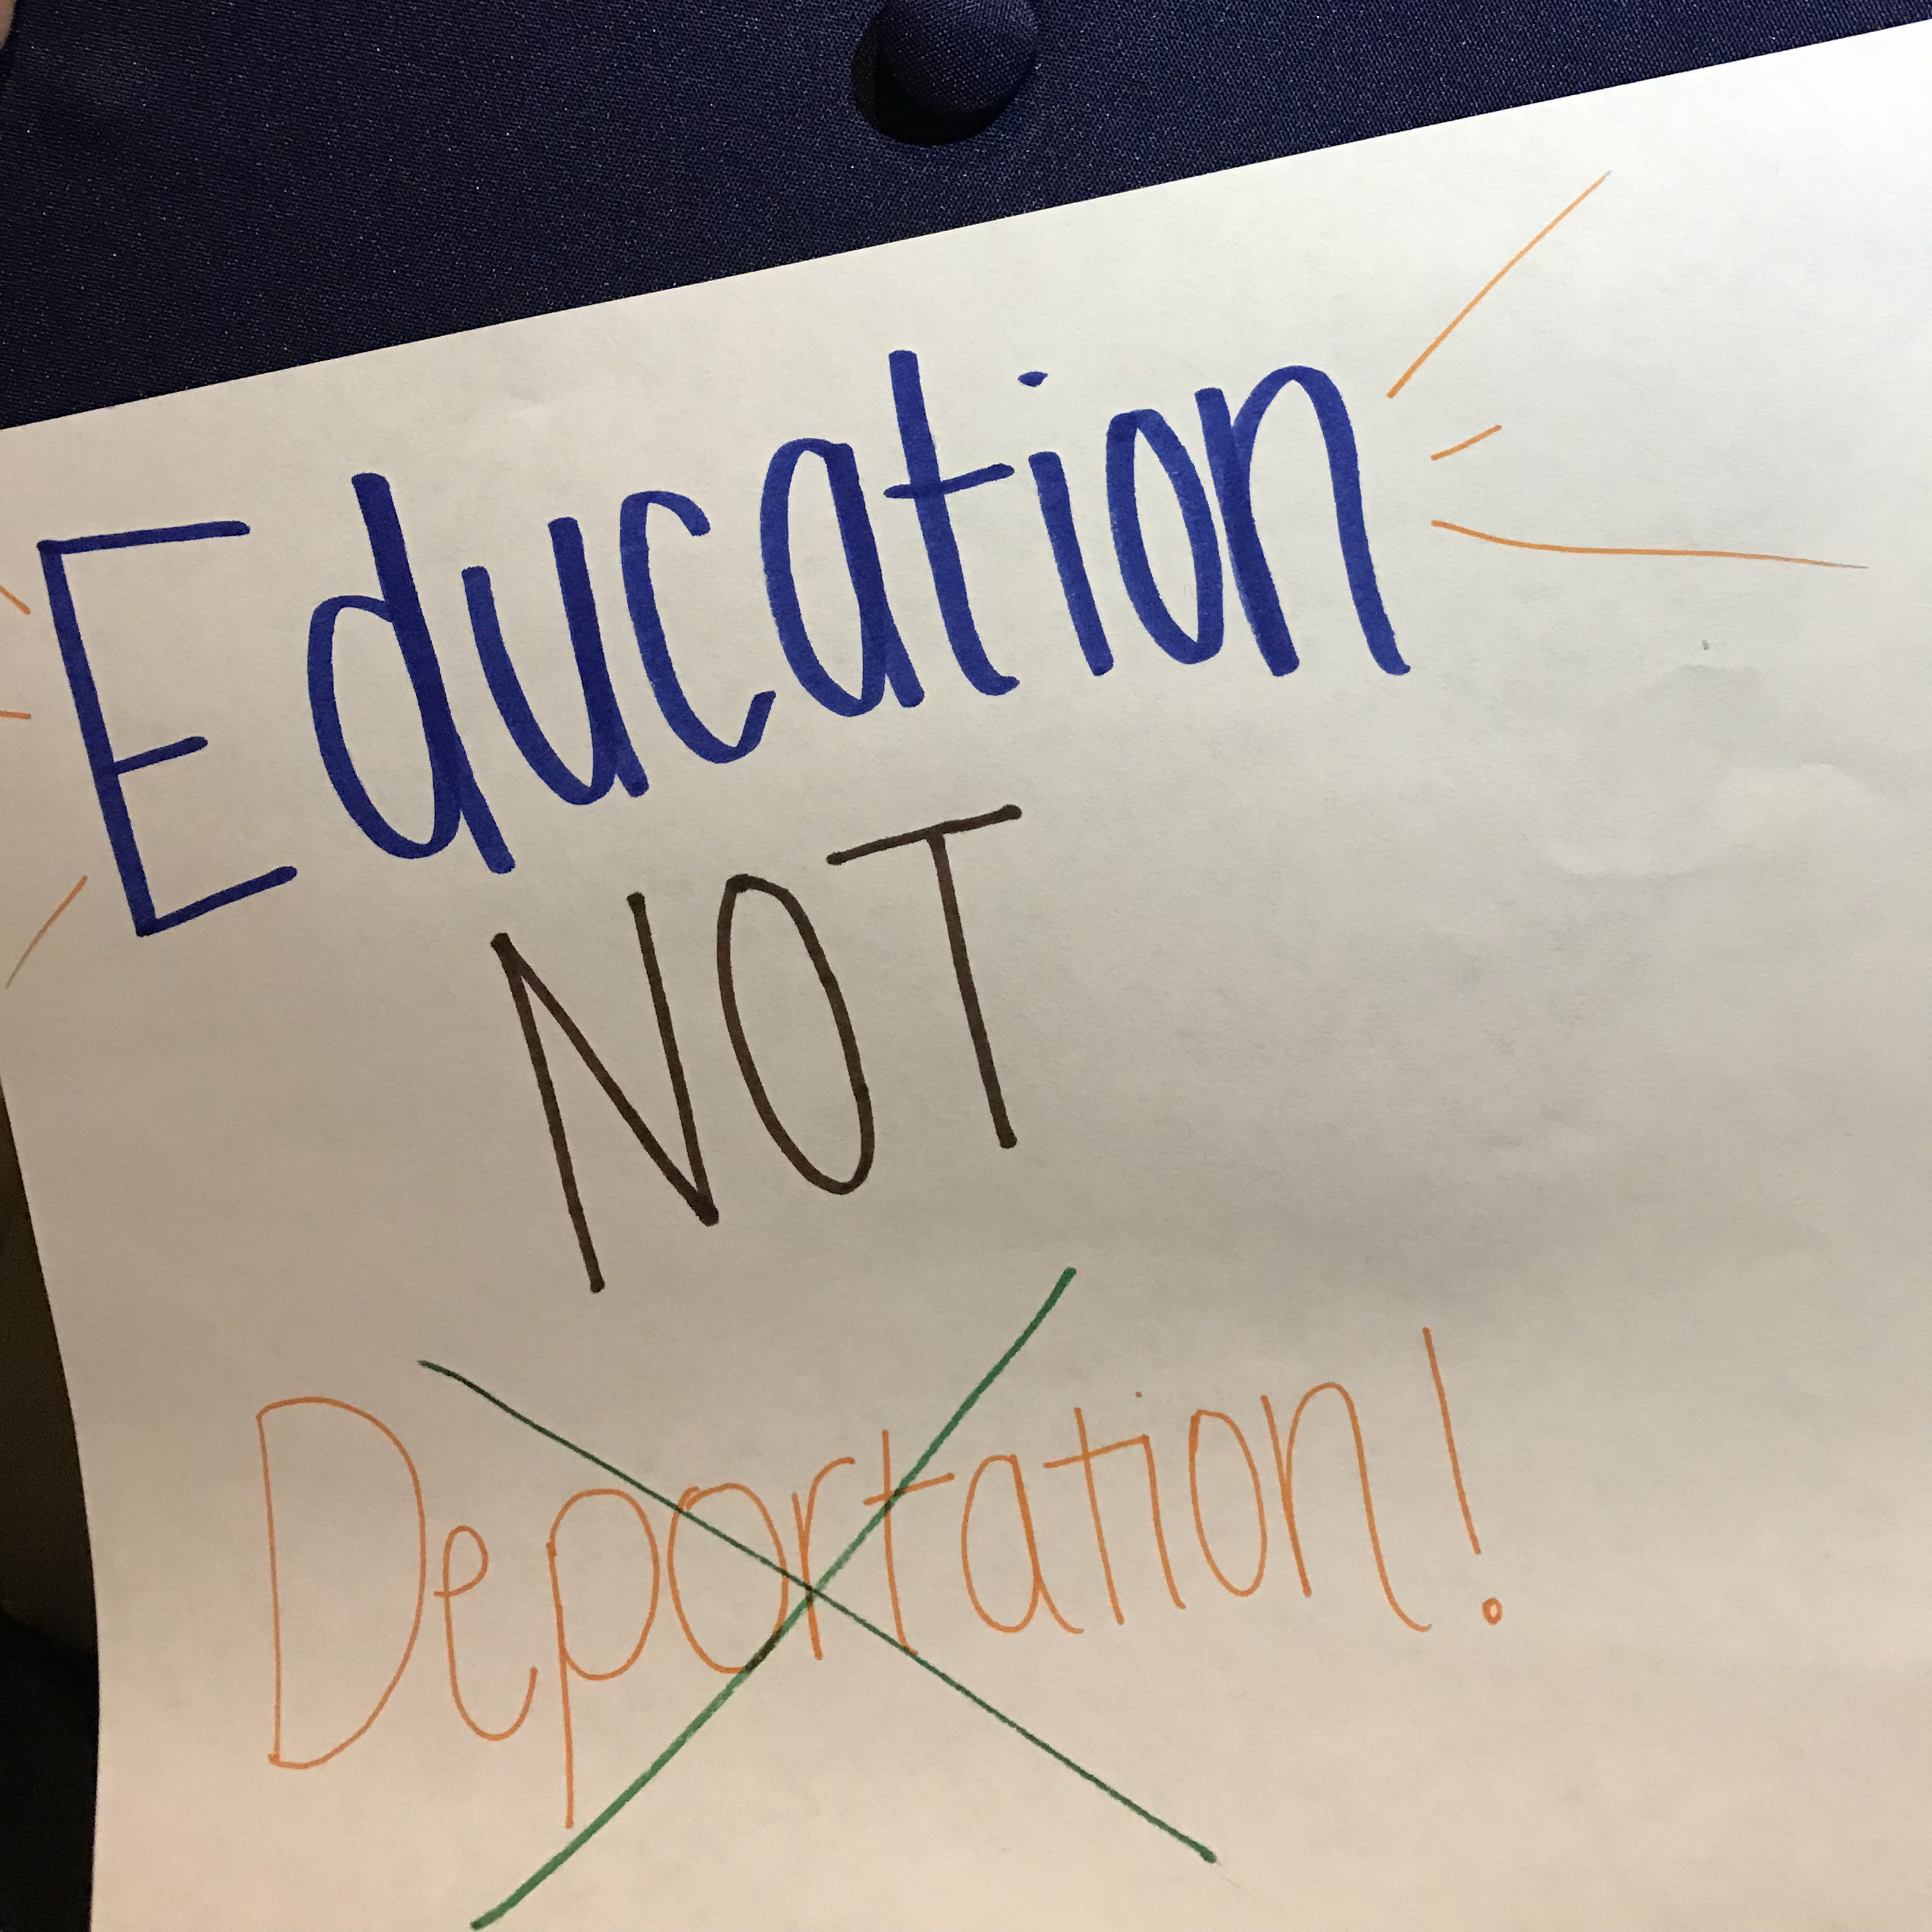 Education
NOT
Deportation!